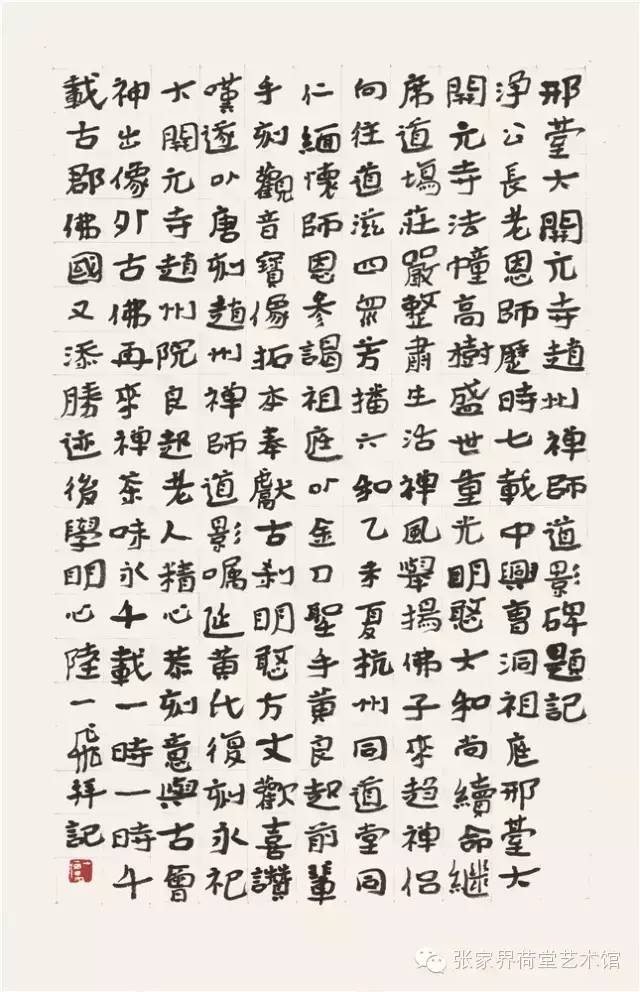 邢臺大開元寺趙州禪師道影碑題記
淨公長老恩師歷時七載中興曹洞祖庭邢臺大
開元寺法幢高樹盛世重光明憨大和尚續命繼
席道場莊嚴整肅生活禪風舉揚佛子來趙禪侶
向往道滋四眾芳播六和乙未夏杭州同道堂同
仁緬懷師恩參謁祖庭以金刀聖手黃良起前輩
手刻觀音寶像拓本奉獻古刹明憨方丈歡喜讚
嘆遂以唐刻趙州禪師道影囑(延)黃氏復刻永祀
大開元寺趙州院良起老人精心恭刻意與古會
神出像外古佛再來禪茶味永千載一時一時千
載古郡佛國又添勝迹後學明心陸一飛拜記
张家界荷堂艺术馆